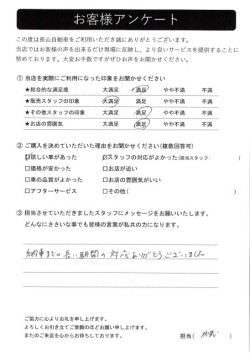 お客様アンケート
この度は長山自動車をご利用いただき誠にありがとうございます。
当店ではお客様の声を出来るだけ現場に反映し、より良いサービスを提供することに
努めております。大変お手数ですがぜひお声をお聞かせください。
① 当店を実際にご利用になった印象をお聞かせください
★総合的な満足度 大満足 満足 やや不満 不満
★販売スタッフの印象 大満足 満足 やや不満 不満
★その他スタッフの印象 大満足 満足 やや不満 不満
★お店の雰囲気 大満足 満足 やや不満 不満
② ご購入を決めていただいた理由をお聞かせください(複数回答可)
☑欲しい車があった ☑スタッフの対応がよかった(担当スタッフ: )
□価格が安かった □お店が近い
□車の品質が良かった □お店の雰囲気がいい
□アフターサービス □その他( )
③ 担当させていただきましたスタッフにメッセージをお願いいたします。
どんなにささいな事でも皆様の言葉が私共の力になります。
納車までの長い期間の対応ありがとうございました。
ご協力に心よりお礼を申し上げます。
よろしくお引き立てご愛顧のほどお願い申し上げます。
またのご来店を心からお待ちしております。
担当( )